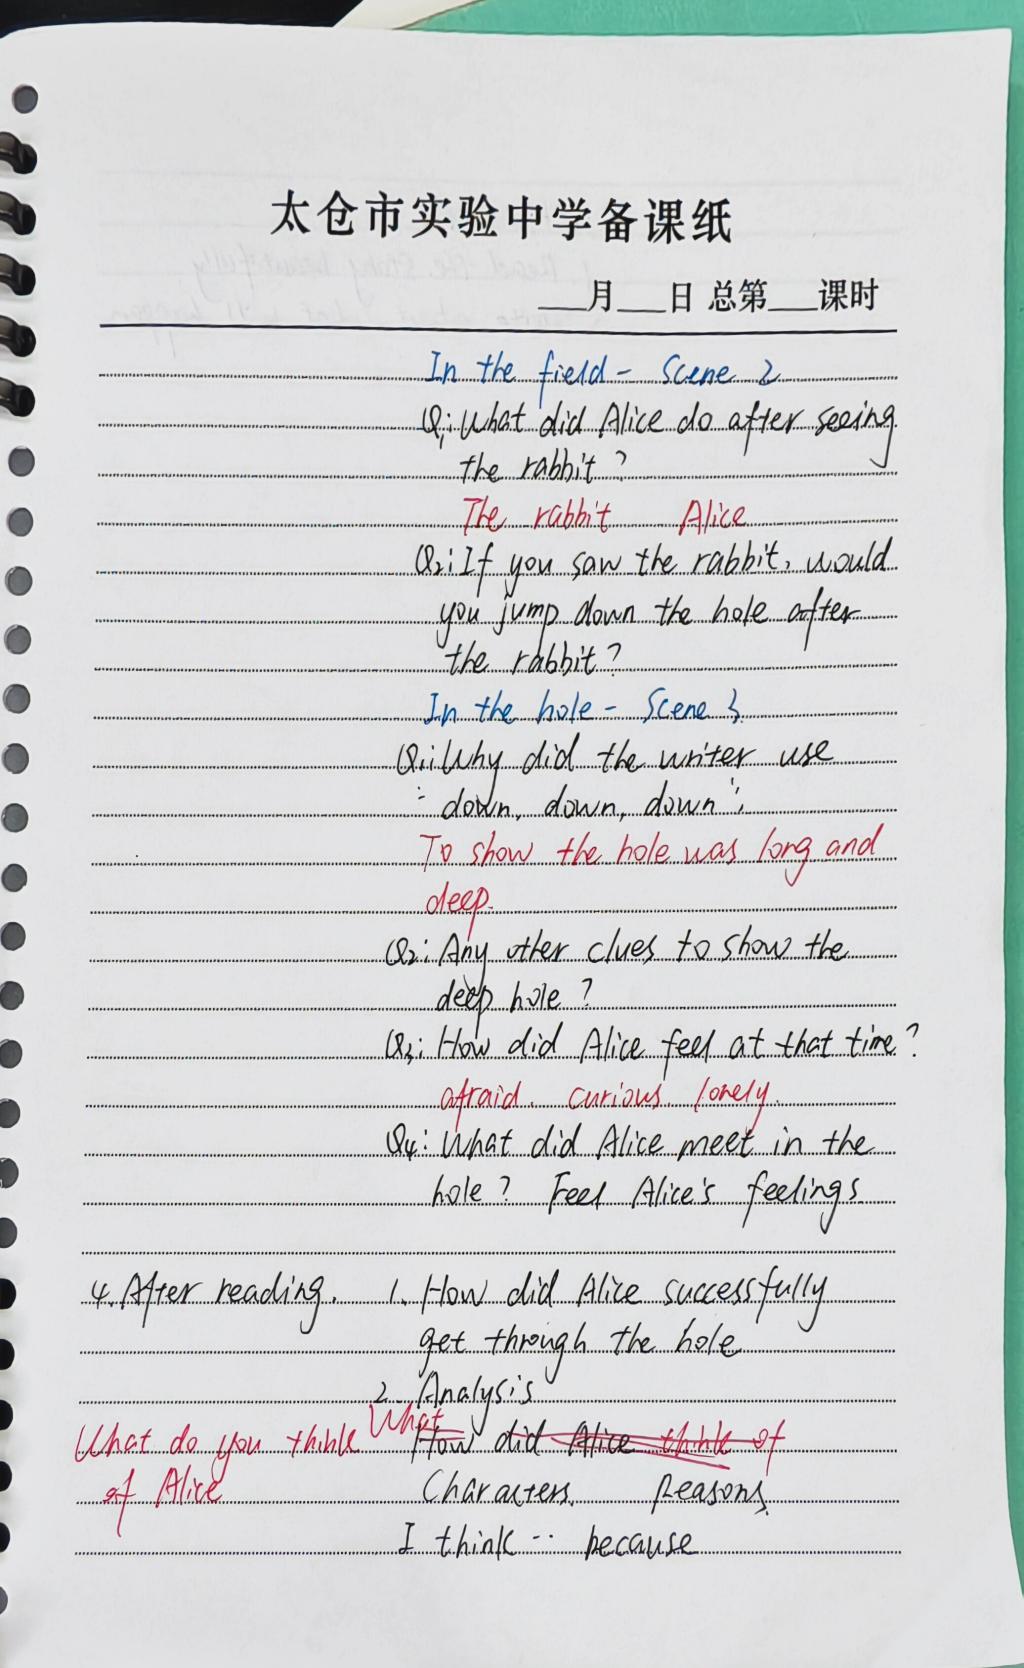 太仓市实验中学备课纸
___月___日 总第___课时
In the field - Scene 2
Q1: What did Alice do after seeing
the rabbit?
The rabbit Alice
Q2: If you saw the rabbit, would
you jump down the hole after
the rabbit?
In the hole - Scene 3
Q1: Why did the writer use
"down, down, down";
To show the hole was long and
deep.
Q2: Any other clues to show the
deep hole?
Q3: How did Alice feel at that time?
afraid. curious. lonely.
Q4: What did Alice meet in the
hole? Feel Alice's feelings
4. After reading. 1. How did Alice successfully
get through the hole
2. Analysis
What do you think What How did Alice think of
of Alice Characters. Reasons.
I think ·· because